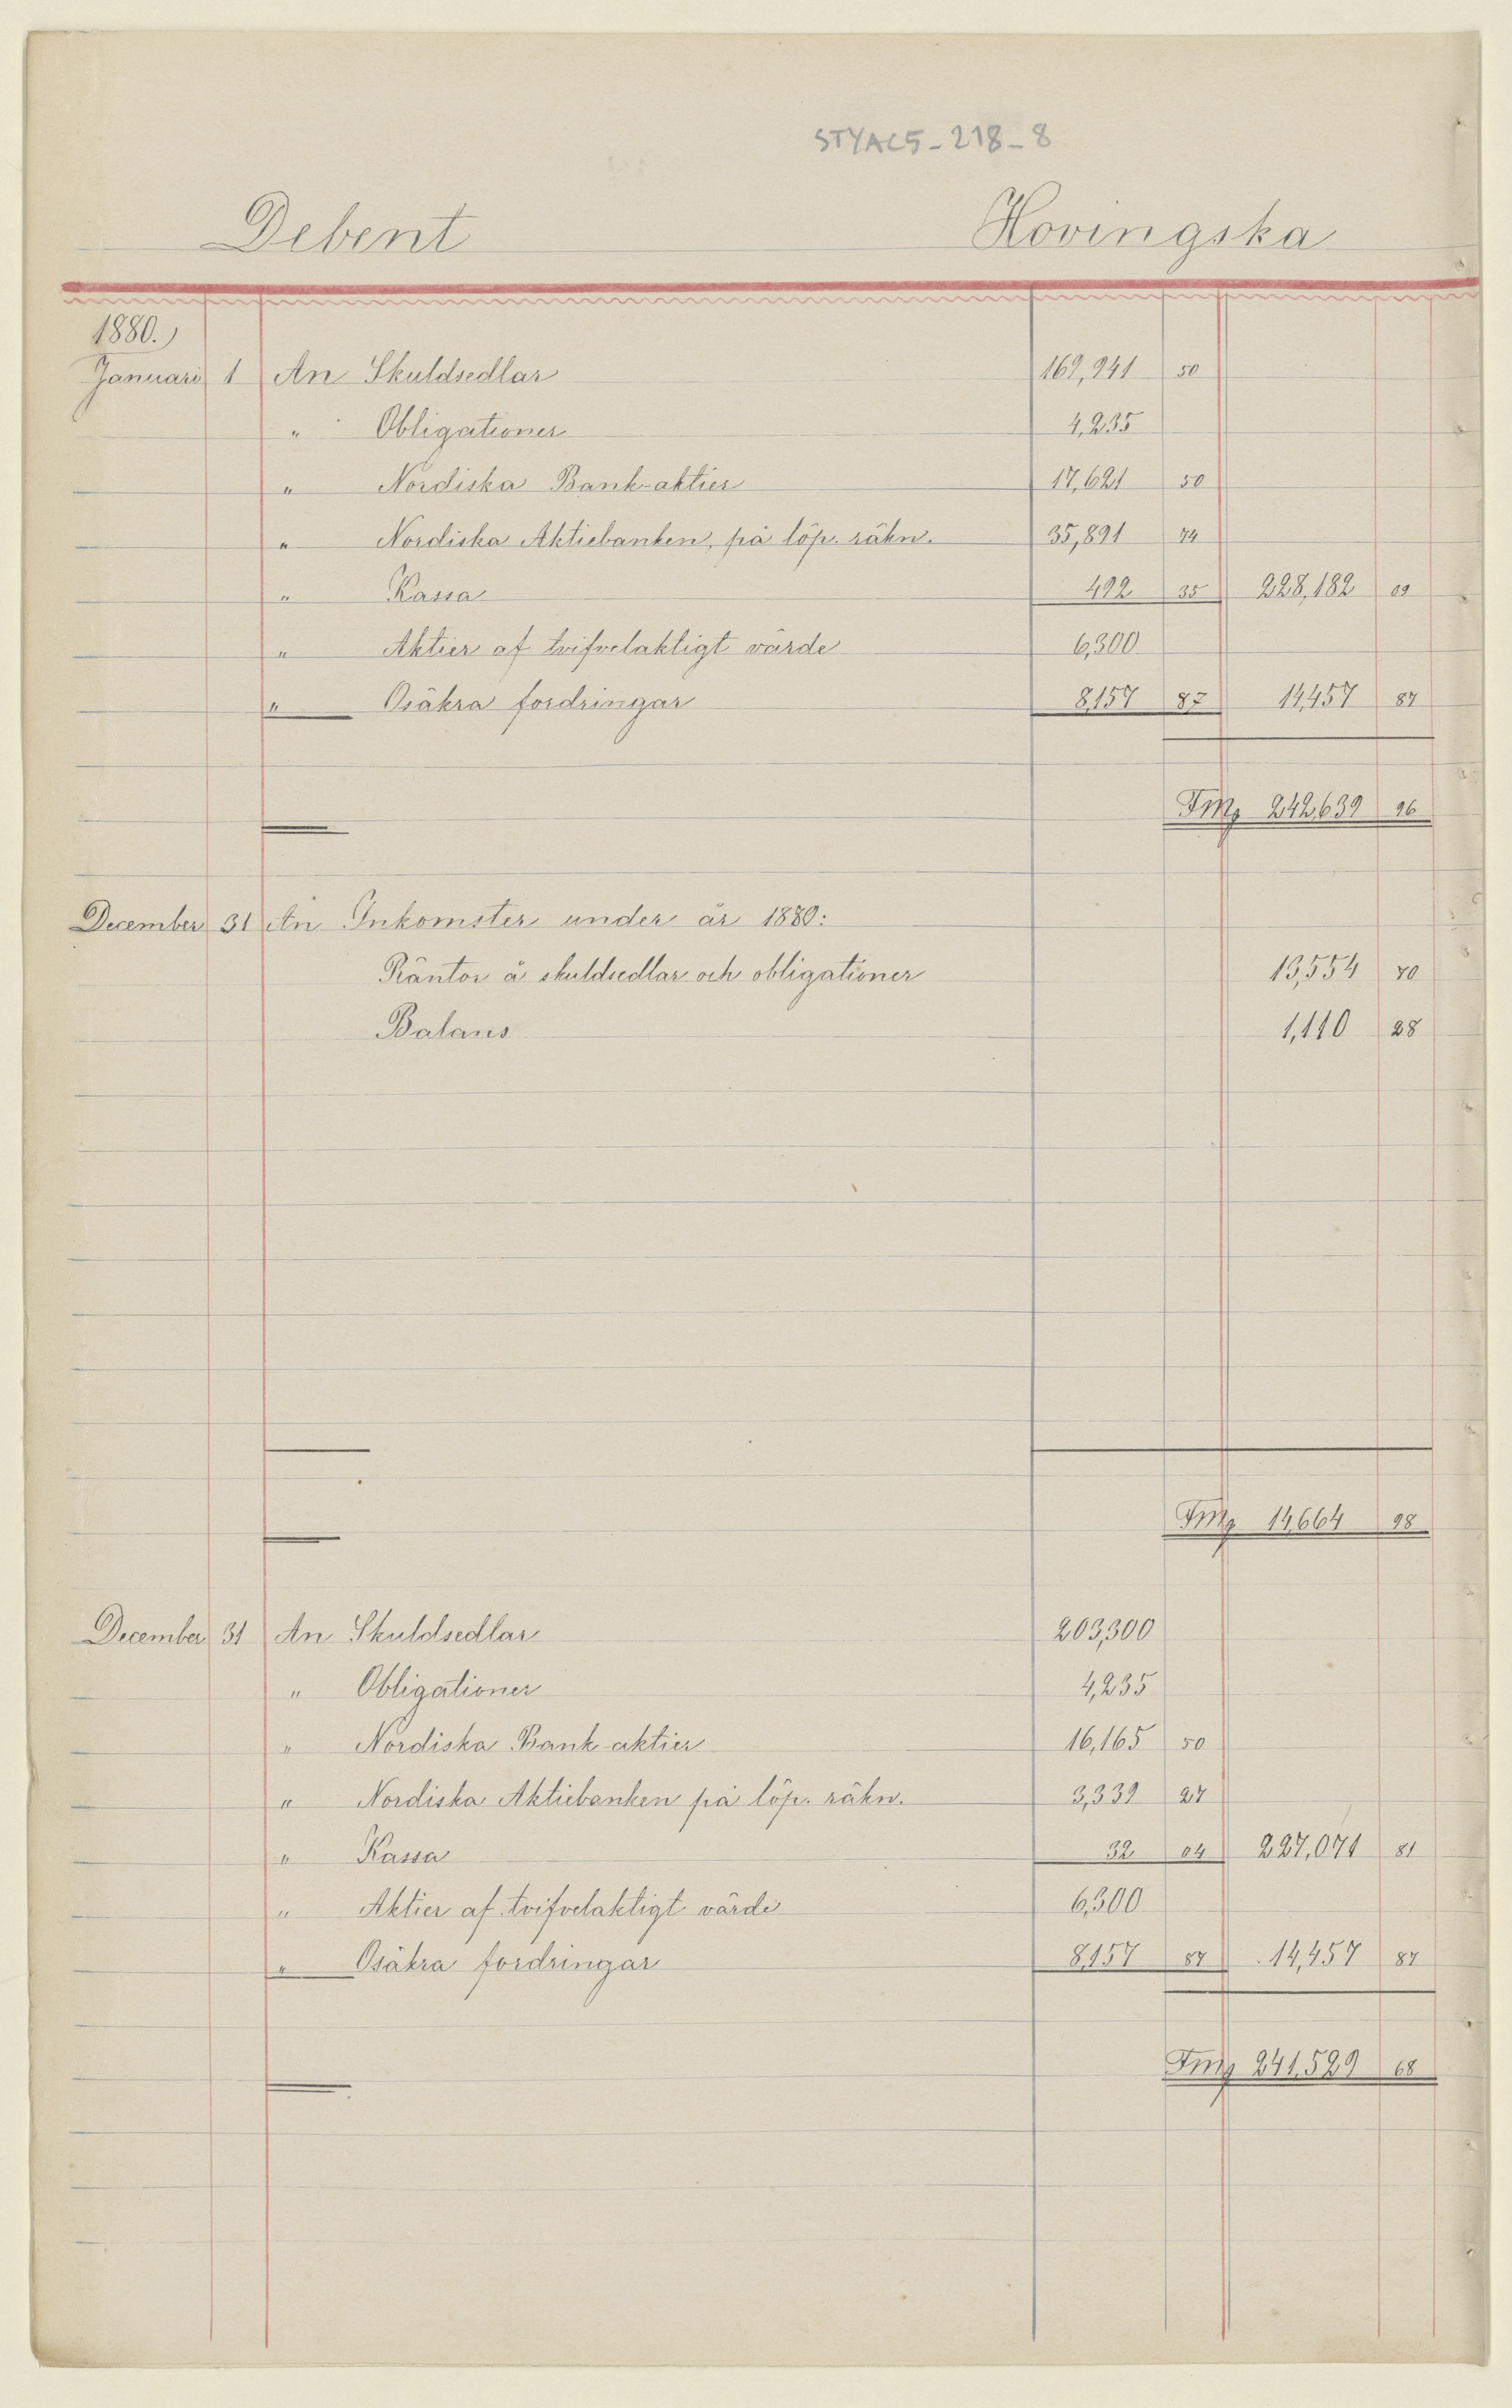 STYAC5-218-8
Debent Hovingska
1880.
Januari 1 An Skuldsedlar 169,941 50
" Obligationer 4,235
" Nordiska Bank-aktier 17,621 50
" Nordiska Aktiebanken, på löp. räkn. 35,891 74
" Kassa 492 35 228,182 09
" Aktier af tvifvelaktigt värde 6,300
" Osäkra fordringar 8,157 87 14,457 87
Fmg 242,639 96
December 31 An Inkomster under år 1880:
Räntor å skuldsedlar och obligationer 13,554 70
Balans 1,110 28
Fmg 14,664 98
December 31 An Skuldsedlar 203,300
" Obligationer 4,235
" Nordiska Bank-aktier 16,165 50
" Nordiska Aktiebanken på löp. räkn. 3,339 27
" Kassa 32 04 227,071 81
" Aktier af tvifvelaktigt värde 6,300
" Osäkra fordringar 8,157 87 14,457 87
Fmg 241,529 68